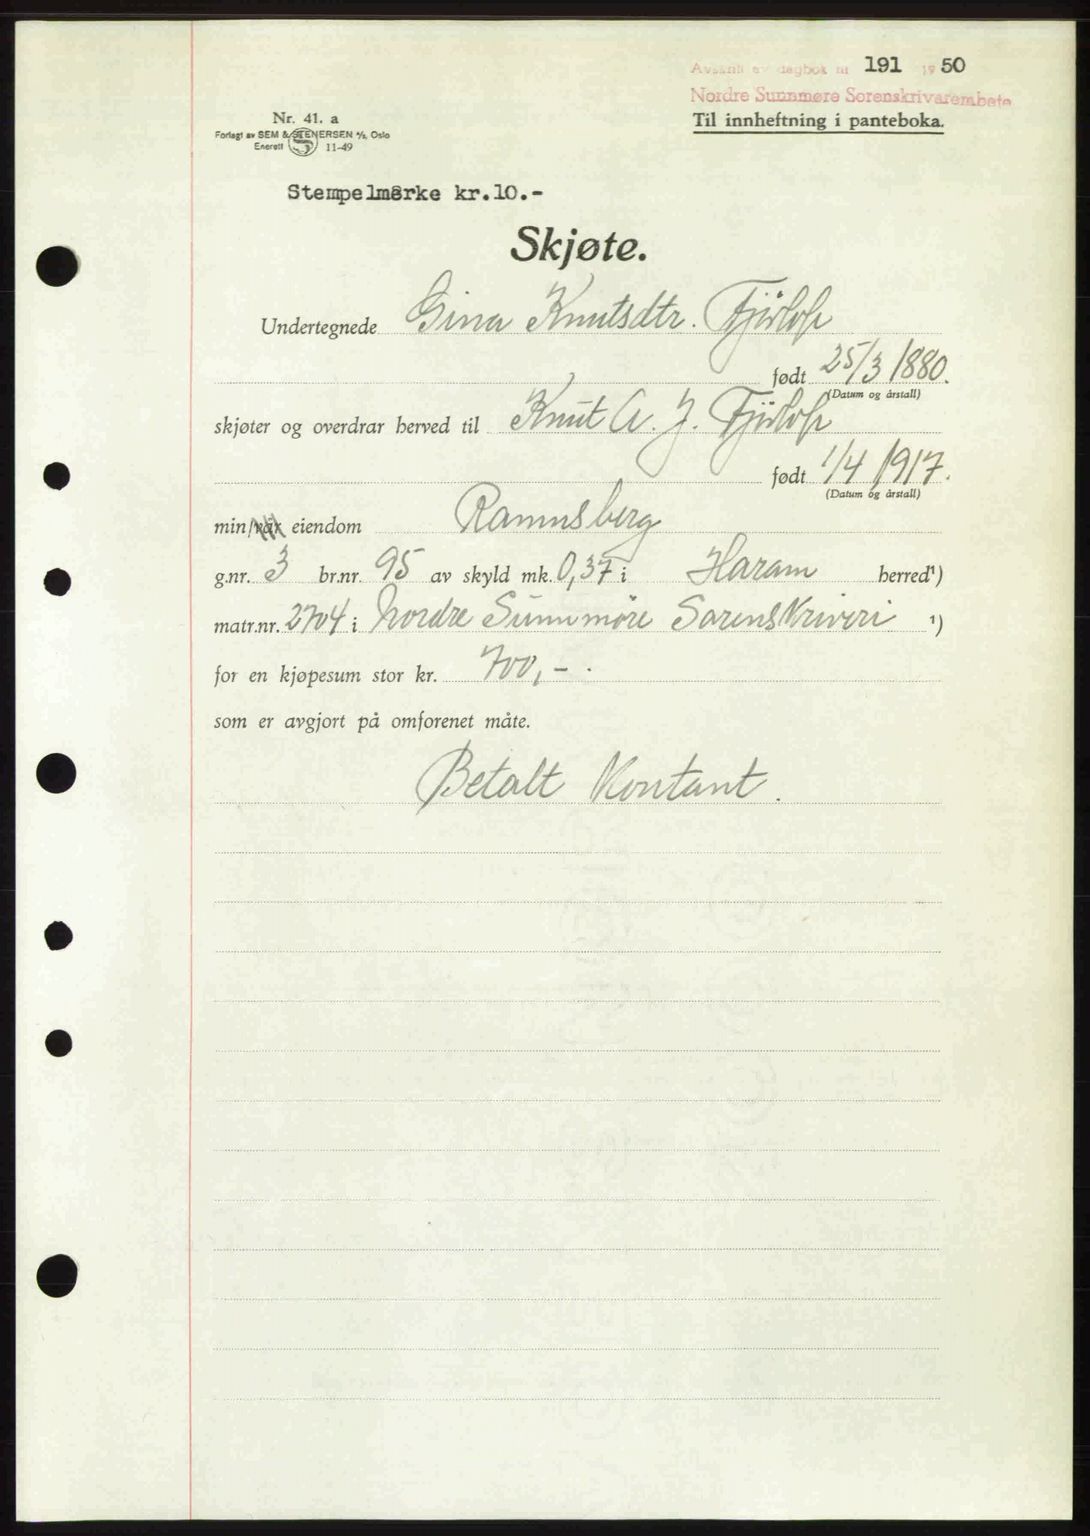 Avskrift av dagbok nr 191 1950
Nordre Sunnmøre Sorenskrivarembete
Til innheftning i panteboka.
Nr. 41. a
Forlagt av SEM & STENERSEN A/S, Oslo
Enerett 11-49
Stempelmerke kr.10.-
Skjøte.
Undertegnede Gina Knutsdtr. Fjörtoft
født 25/3 1880.
(Datum og årstall)
skjøter og overdrar herved til Knut A. J. Fjörtoft
født 1/4 1917.
(Datum og årstall)
min/vår eiendom Ramnsberg
g.nr. 3 br.nr. 95 av skyld mk. 0,37 i Haram herred¹)
matr.nr. 2704 i Nordre Sünnmöre Sorenskriveri ¹)
for en kjøpesum stor kr. 700,-
som er avgjort på omforenet måte.
Betalt Kontant.